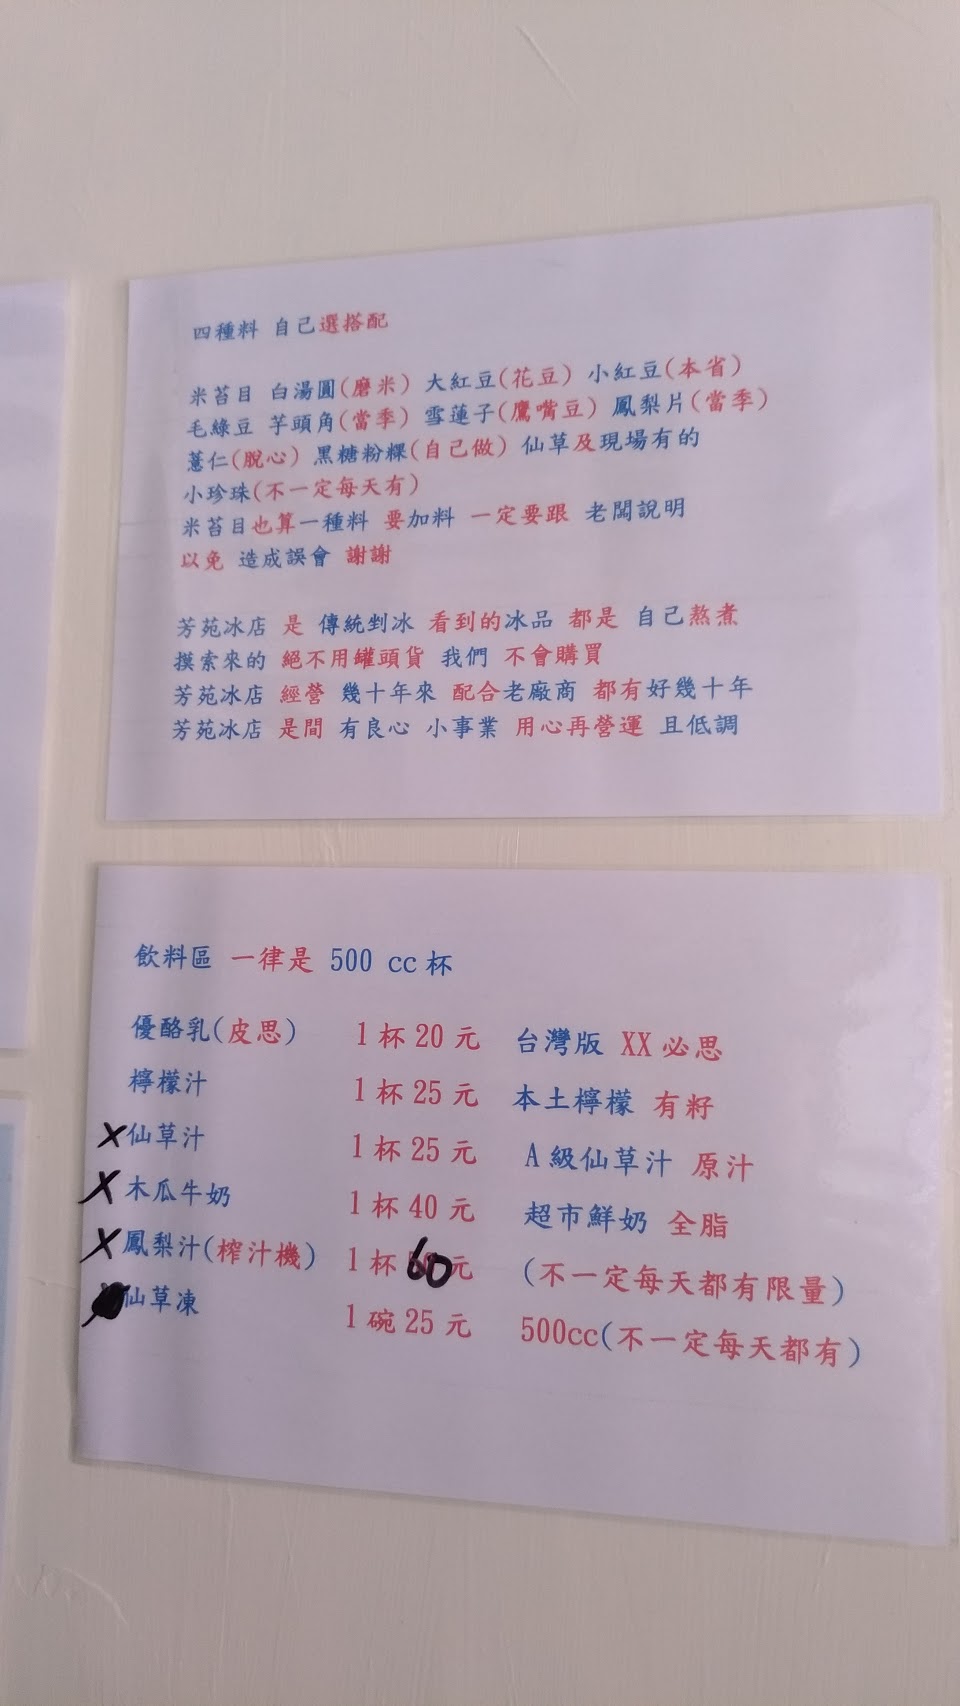 四種料 自己選搭配
米苔目 白湯圓(磨米) 大紅豆(花豆) 小紅豆(本省)
毛綠豆 芋頭角(當季) 雪蓮子(鷹嘴豆) 鳳梨片(當季)
薏仁(脫心) 黑糖粉粿(自己做) 仙草及現場有的
小珍珠(不一定每天有)
米苔目也算一種料 要加料 一定要跟 老闆說明
以免 造成誤會 謝謝
芳苑冰店 是 傳統剉冰 看到的冰品 都是 自己熬煮
摸索來的 絕不用罐頭貨 我們 不會購買
芳苑冰店 經營 幾十年來 配合老廠商 都有好幾十年
芳苑冰店 是間 有良心 小事業 用心再營運 且低調
飲料區 一律是 500 cc 杯
優酪乳(皮思) 1 杯 20 元 台灣版 XX 必思
檸檬汁 1 杯 25 元 本土檸檬 有籽
X 仙草汁 1 杯 25 元 A 級仙草汁 原汁
X 木瓜牛奶 1 杯 40 元 超市鮮奶 全脂
X 鳳梨汁(榨汁機) 1 杯 60 元 (不一定每天都有限量)
仙草凍 1 碗 25 元 500cc(不一定每天都有)